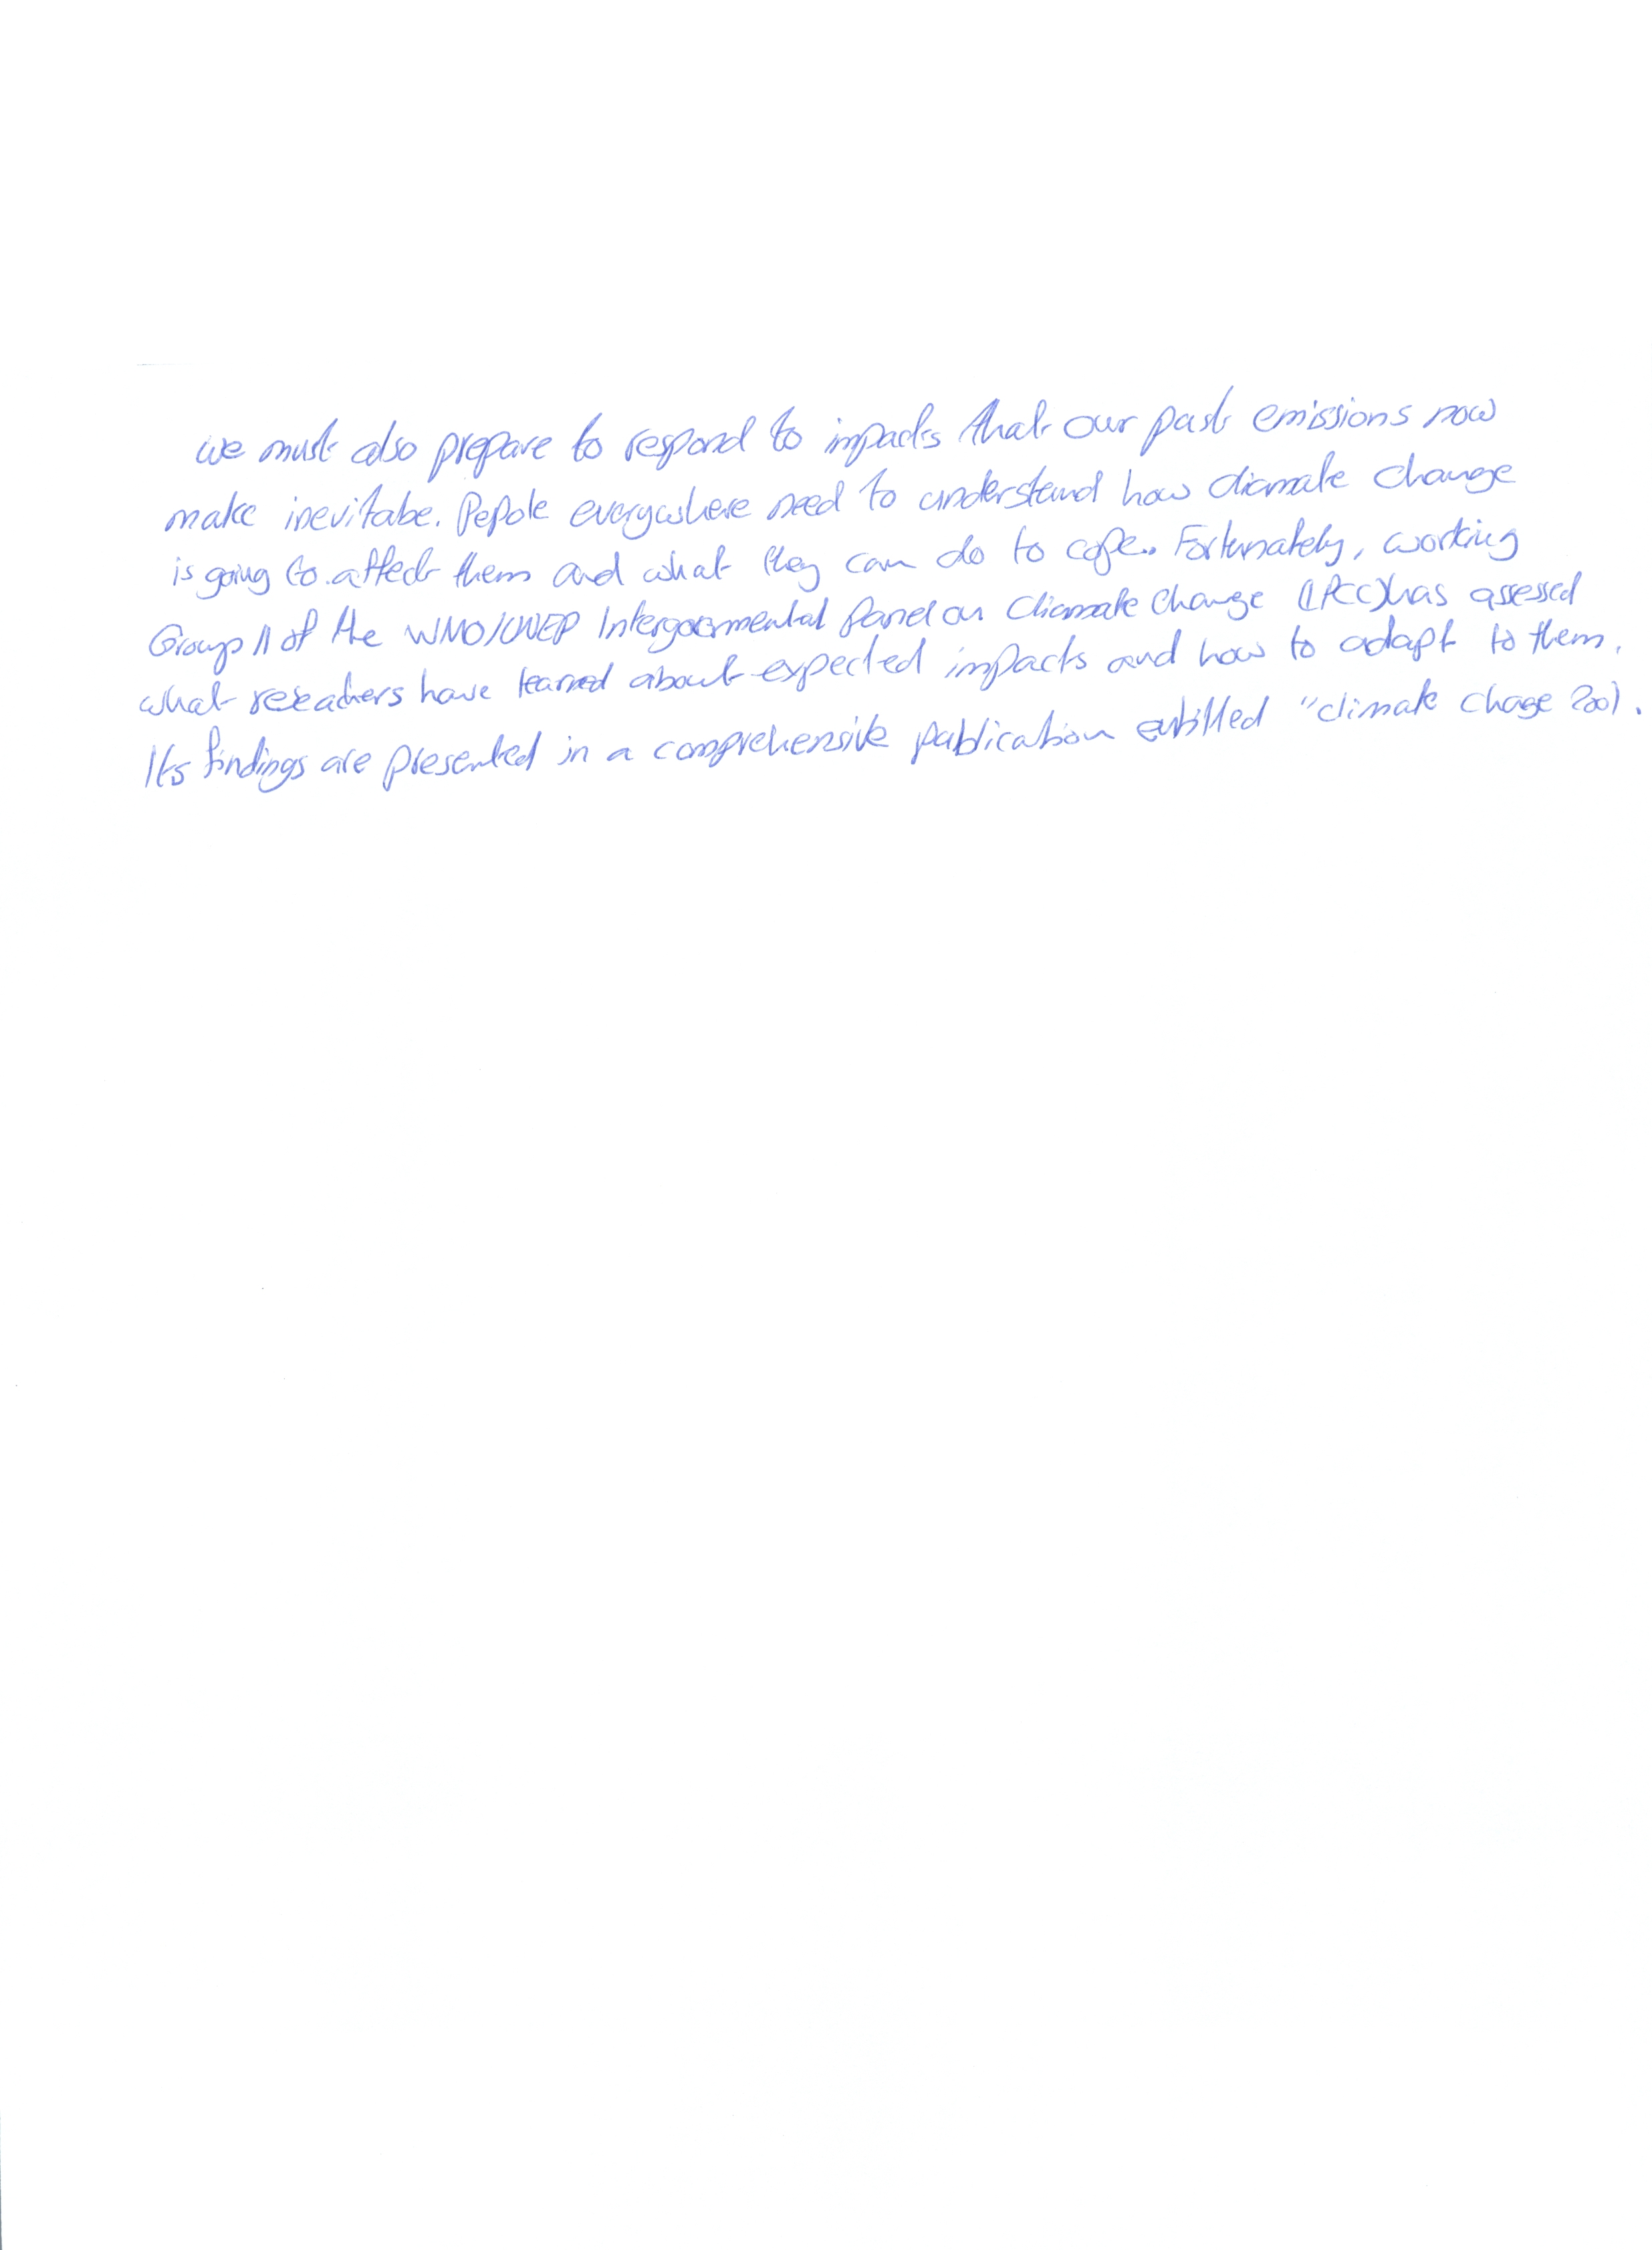 we must also prepare to respond to impacts that our past emissions now
make inevitabe. Pepole everywhere need to understand how cliamate change
is going to affect them and what they can do to cope.. Fortunately, working
Group II of the WMO/UNEP Intergovernmental panel on Cliamate Change (IPCC) has assessed
what reseachers have learned about expected impacts and how to adapt to them.
Its findings are presented in a comprehensive publication entitled "climate chage 2001.